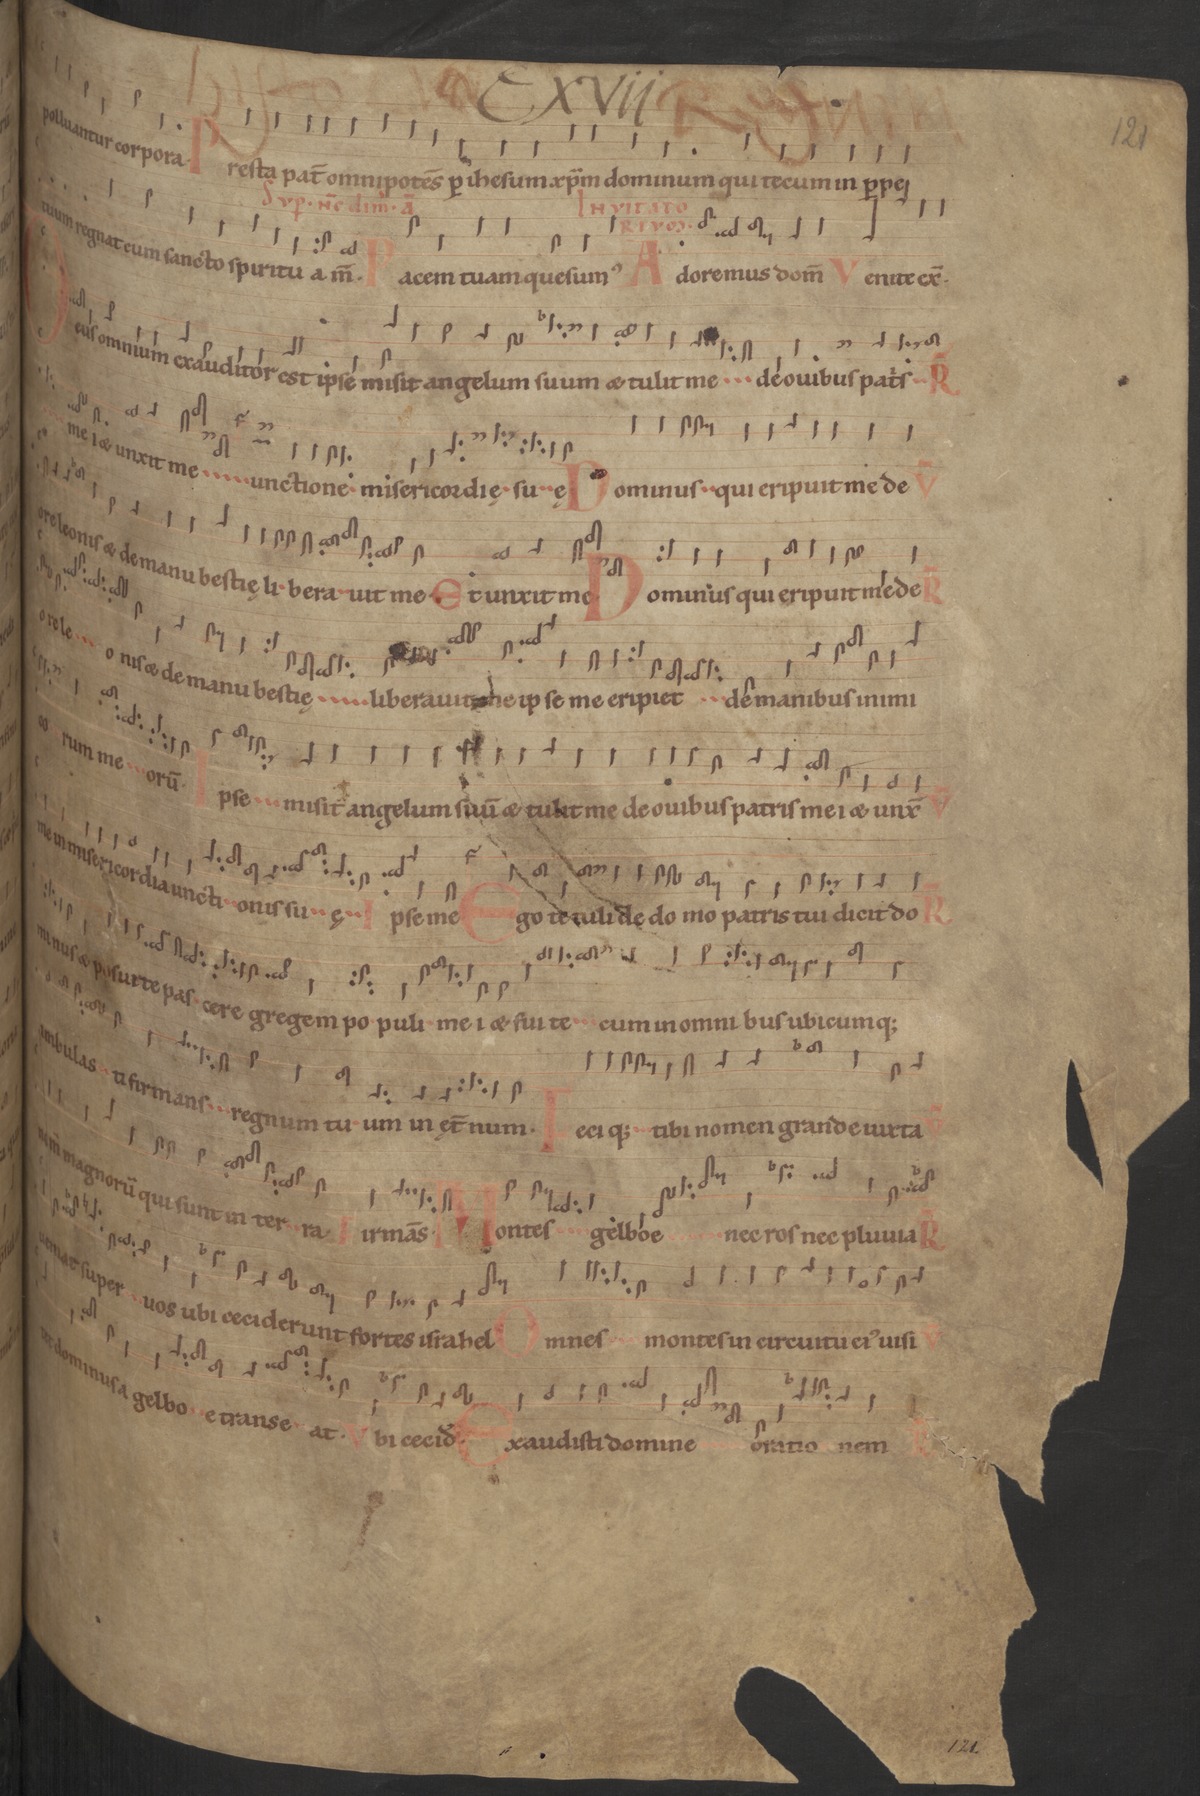 CXVII
121
polluantur corpora. Presta pat̄ omnipotēs ꝑ ihesum xp̄m dominum qui tecum in ꝑpe
tuum regnat cum sancto spiritu am̄. Pacem tuam quesumꝰ Adoremus dom̄ V enite ex̄.
Svp. Nc̄ dim. ā INVITATO
RIVOꝜ.
Deus omnium exauditor est ipse misit angelum suum & tulit me de ouibus pat̄s R̄
mei & unxit me unctione misericordię suę Dominus qui eripuit me de V̄
ore leonis & de manu bestię liberauit me Et unxit me Dominus qui eripuit me de R̄
ore leonis & de manu bestię liberauit me ipse me eripiet de manibus inimi
corum meorū Ipse misit angelum suū & tulit me de ouibus patris mei & unx̄ V̄
me in misericordia unctionis suę Ipse me Ego te tuli de domo patris tui dicit do R̄
minus & posui te pascere gregem populi mei & fui tecum in omnibus ubicumq;
ambulasti firmans regnum tuum in ęt̄num. Feciq; tibi nomen grande iuxta V̄
nom̄ magnorū qui sunt in terra Firmās V Montes gelboe nec ros nec pluuia R̄
ueniat super uos ubi ceciderunt fortes israhel Omnes montes in circuitu eiꝰ uisi V̄
tet dominus a gelboe transeat. Vbi cecid̄. Exaudisti domine orationem R̄
121